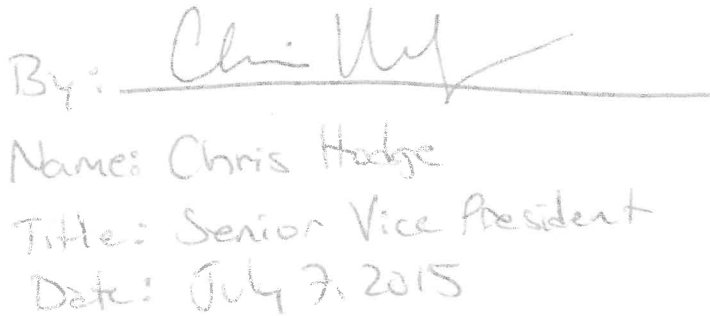 By: Chris Hodge
Name: Chris Hodge
Title: Senior Vice President
Date: July 7, 2015